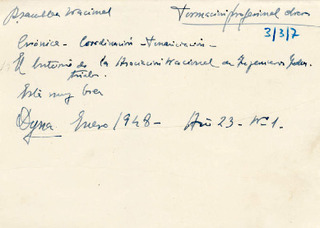 Asamblea Nacional
Formación profesional obrera
3/3/7
Crónica - Coordinación - Financiación -
El Interior de la Asociación Nacional de Ingenieros Indus
triales.
Está muy bien
Dyna Enero/1948 - Año 23 - Nº 1.